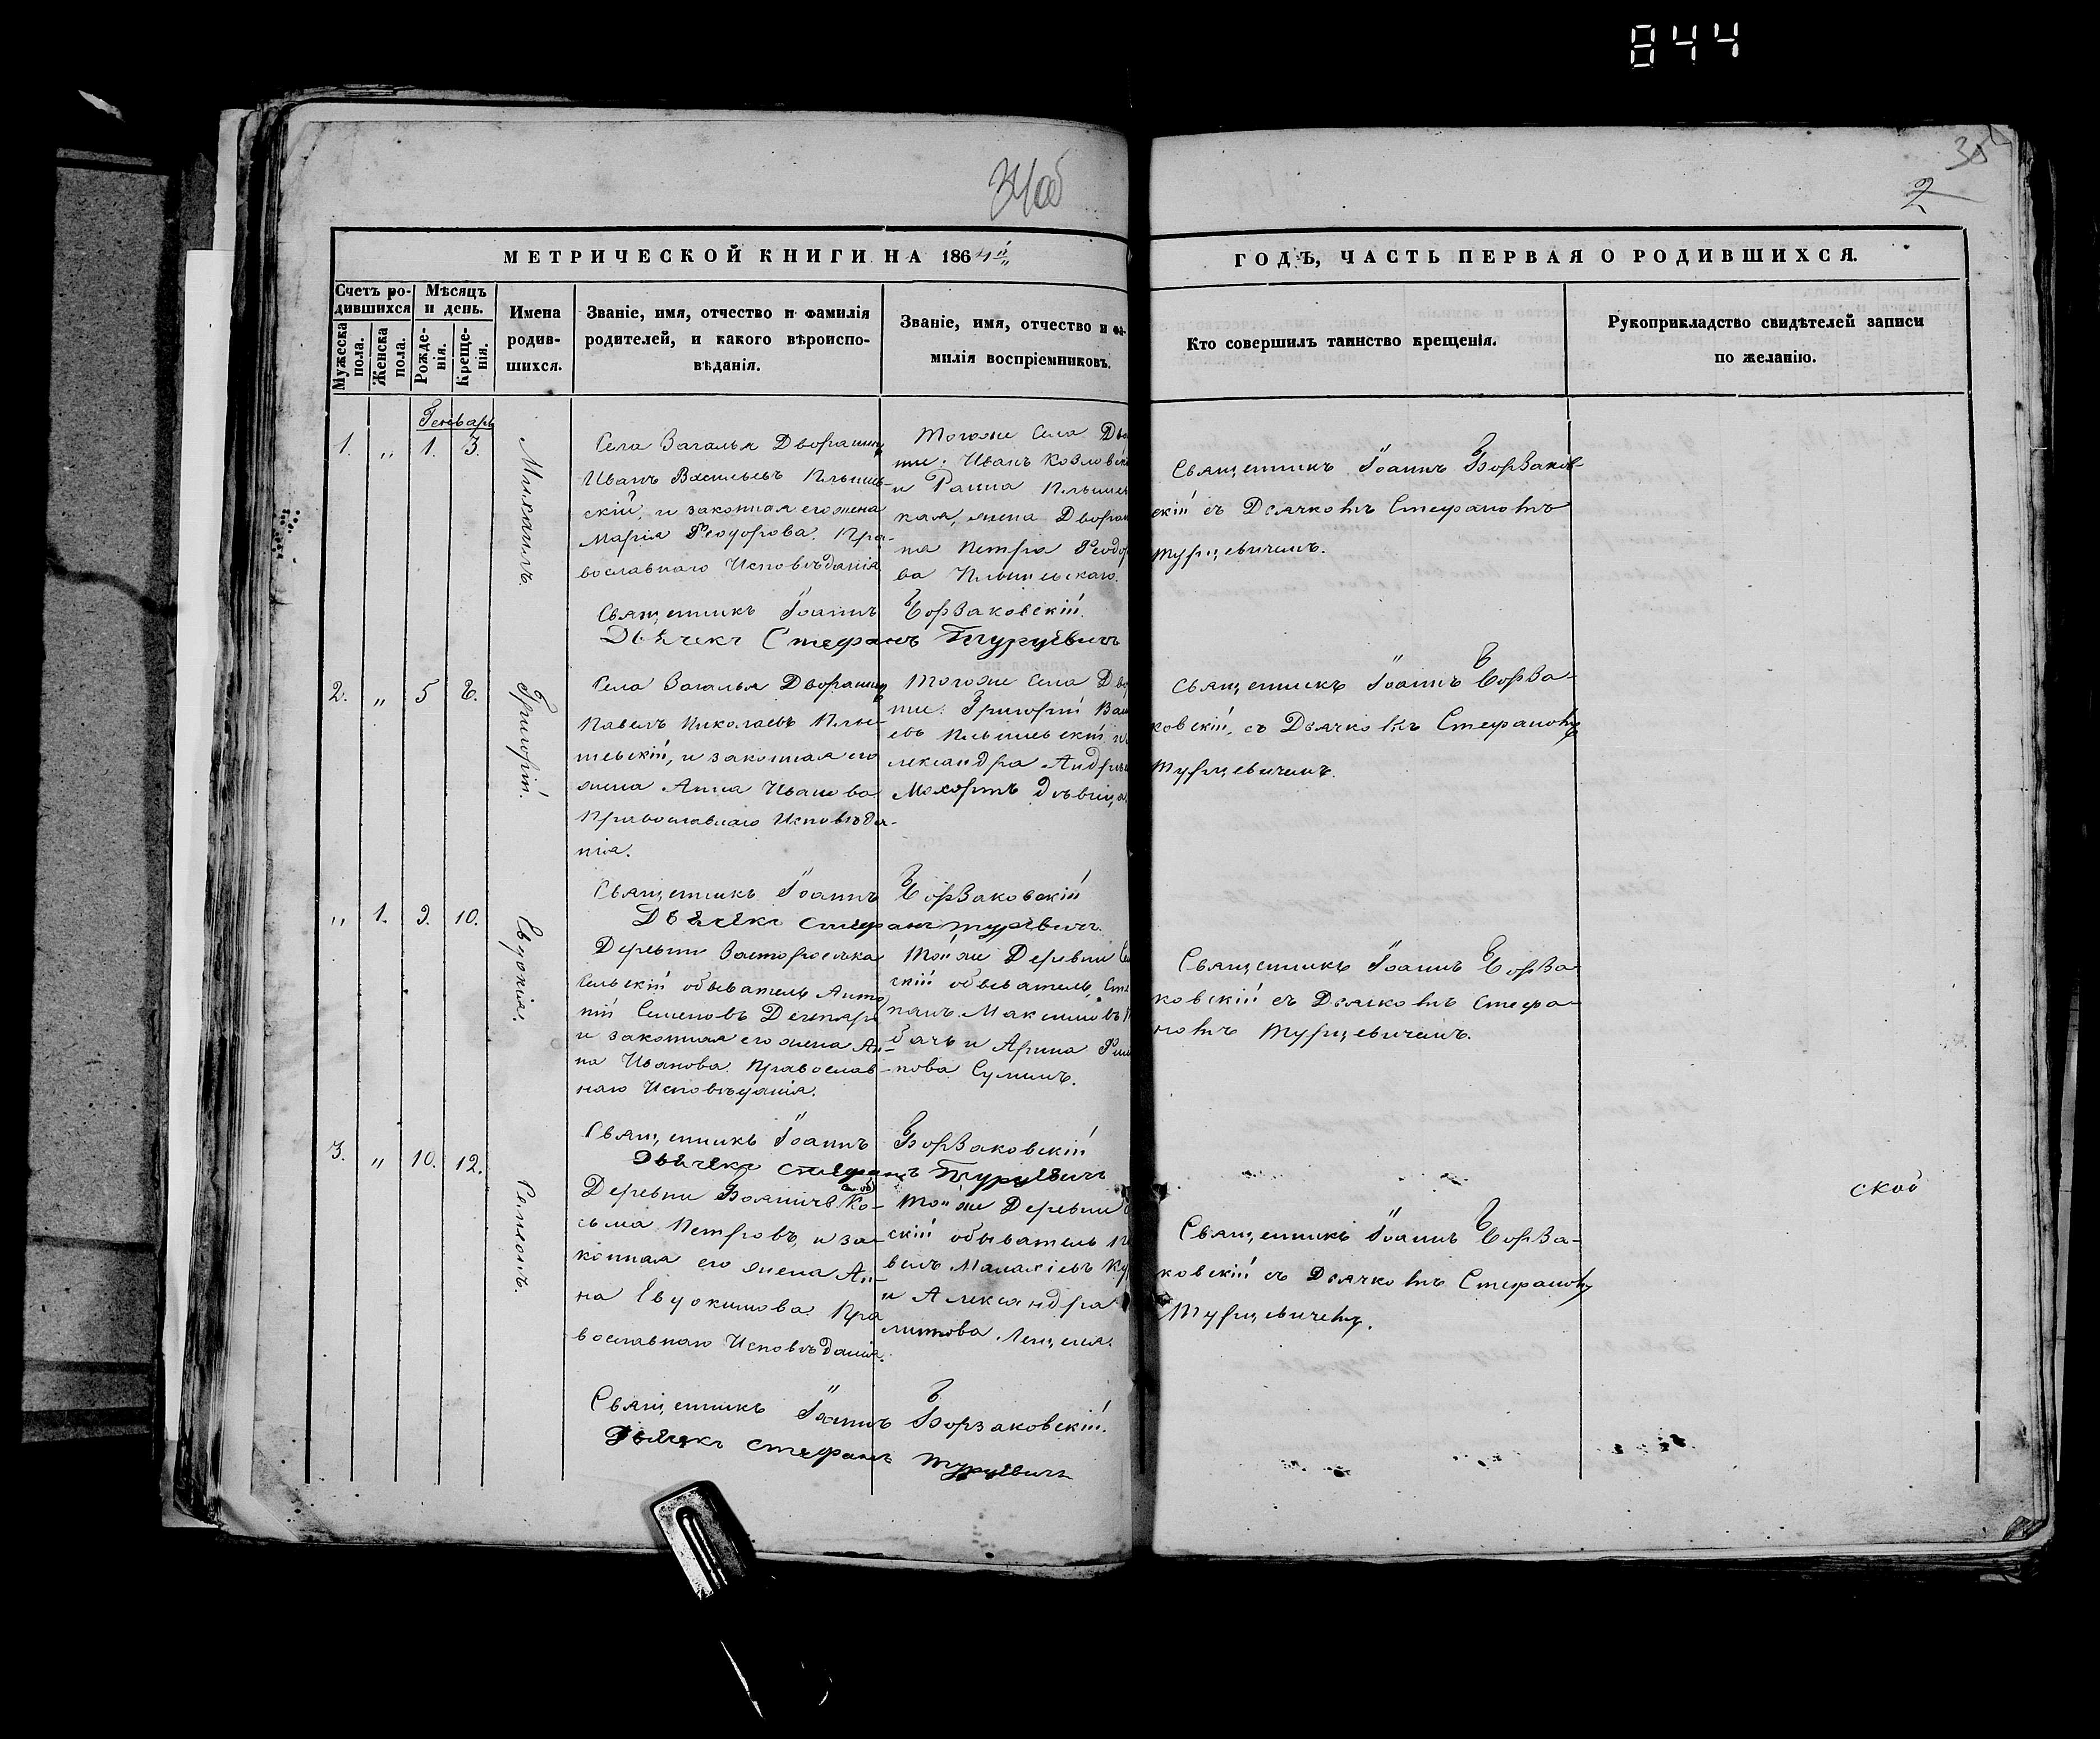 844
34об
35
2
МЕТРИЧЕСКОЙ КНИГИ НА 1864й
ГОДЪ, ЧАСТЬ ПЕРВАЯ О РОДИВШИХСЯ.
Счетъ ро-
дившихся
Мужеска пола.
Женска пола.
Мѣсяцъ
и день.
Рожде-
нія.
Креще-
нія.
Имена
родив-
шихся.
Званіе, имя, отчество и фамилія
родителей, и какого вѣроиспо-
вѣданія.
Званіе, имя, отчество и фа-
милія воспріемниковъ.
Кто совершилъ таинство крещенія.
Рукоприкладство свидѣтелей записи
по желанію.
Генварь
1. " 1. 3.
Михаилъ.
Села Загалья Дворянинъ
Иванъ Васильевъ
скій, и законная его жена
Марія Ѳеодорова. Пра-
вославнаго Исповѣданія
Тогоже Села
Иванъ Козловскі
и
кая, жена Дворян
на Петра Ѳеодо
ва
Священникъ Іоаннъ Борзаков-
скій съ Дьячкомъ Стефаномъ
Турцевичемъ.
Священникъ Іоаннъ Борзаковскій.
Дьячекъ Стефанъ Турцевичъ
2. " 5 6.
Григорій.
Села Загалья Дворянинъ
Павелъ Николаевъ
и законная его
жена Анна Иванова
Православнаго Исповѣда-
нія.
Тогоже Села
Григорій
евъ
лександра Андрѣе
Мохортъ дѣвица
Священникъ Іоаннъ Борза-
ковскій, съ Дьячкомъ Стефаномъ
Турцевичемъ.
Священникъ Іоаннъ Борзаковскій
Дьячекъ Стефанъ Турцевичъ.
" 1. 9. 10.
Евдокія.
Деревни
Сельскій обыватель Анто
ній Семеновъ
и законная его жена Ан-
на Иванова. Православ-
наго Исповѣданія.
Той же Деревни Сель
скій обыватель, Сте
панъ Максимовъ
бачъ и Арина
нова
Священникъ Іоаннъ Борза
ковскій съ Дьячкомъ Стефа-
номъ Турцевичемъ.
Священникъ Іоаннъ Борзаковскій
Дьячекъ Стефанъ Турцевичъ
3. " 10. 12.
Деревни
Ко-
сьма Петровъ, и за-
конная его жена Ан-
на Евдокимова. Пра
вославнаго Исповѣданія.
Той же Деревни
скій обыватель
велъ
и Александра
Священникъ Іоаннъ Борза-
ковскій съ Дьячкомъ Стефаномъ
Турцевичемъ.
ской
Священникъ Іоаннъ Борзаковскій.
Дьячекъ Стефанъ Турцевичъ